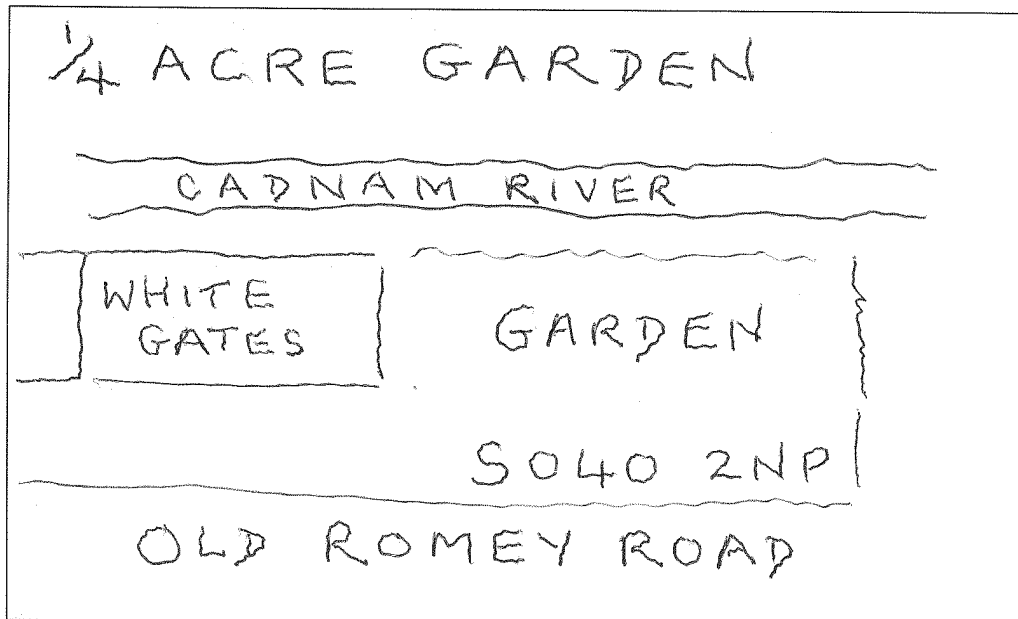 1/4 ACRE GARDEN
CADNAM RIVER
WHITE
GATES
GARDEN
SO40 2NP
OLD ROMEY ROAD